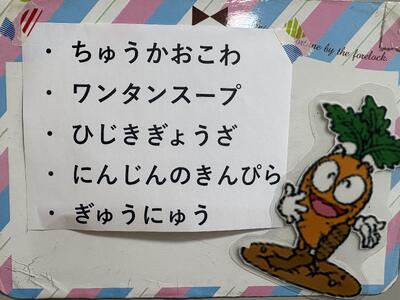 ne by the forelock
・ちゅうかおこわ
・ワンタンスープ
・ひじきぎょうざ
・にんじんのきんぴら
・ぎゅうにゅう